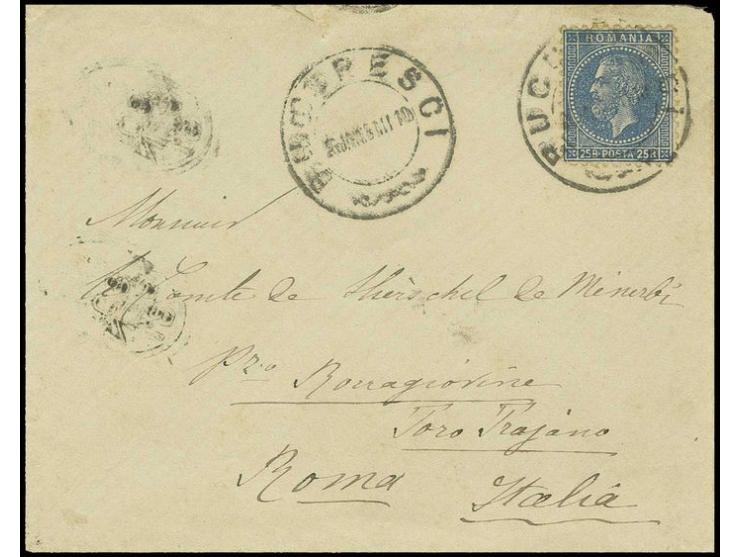 ROMANIA
25B POSTA 25B
BUCURESCI
BUCU
Monsieur
Le Comte de Hierschel de Minerbi
Pzo Borragiovine
Foro Trajano
Roma Italia